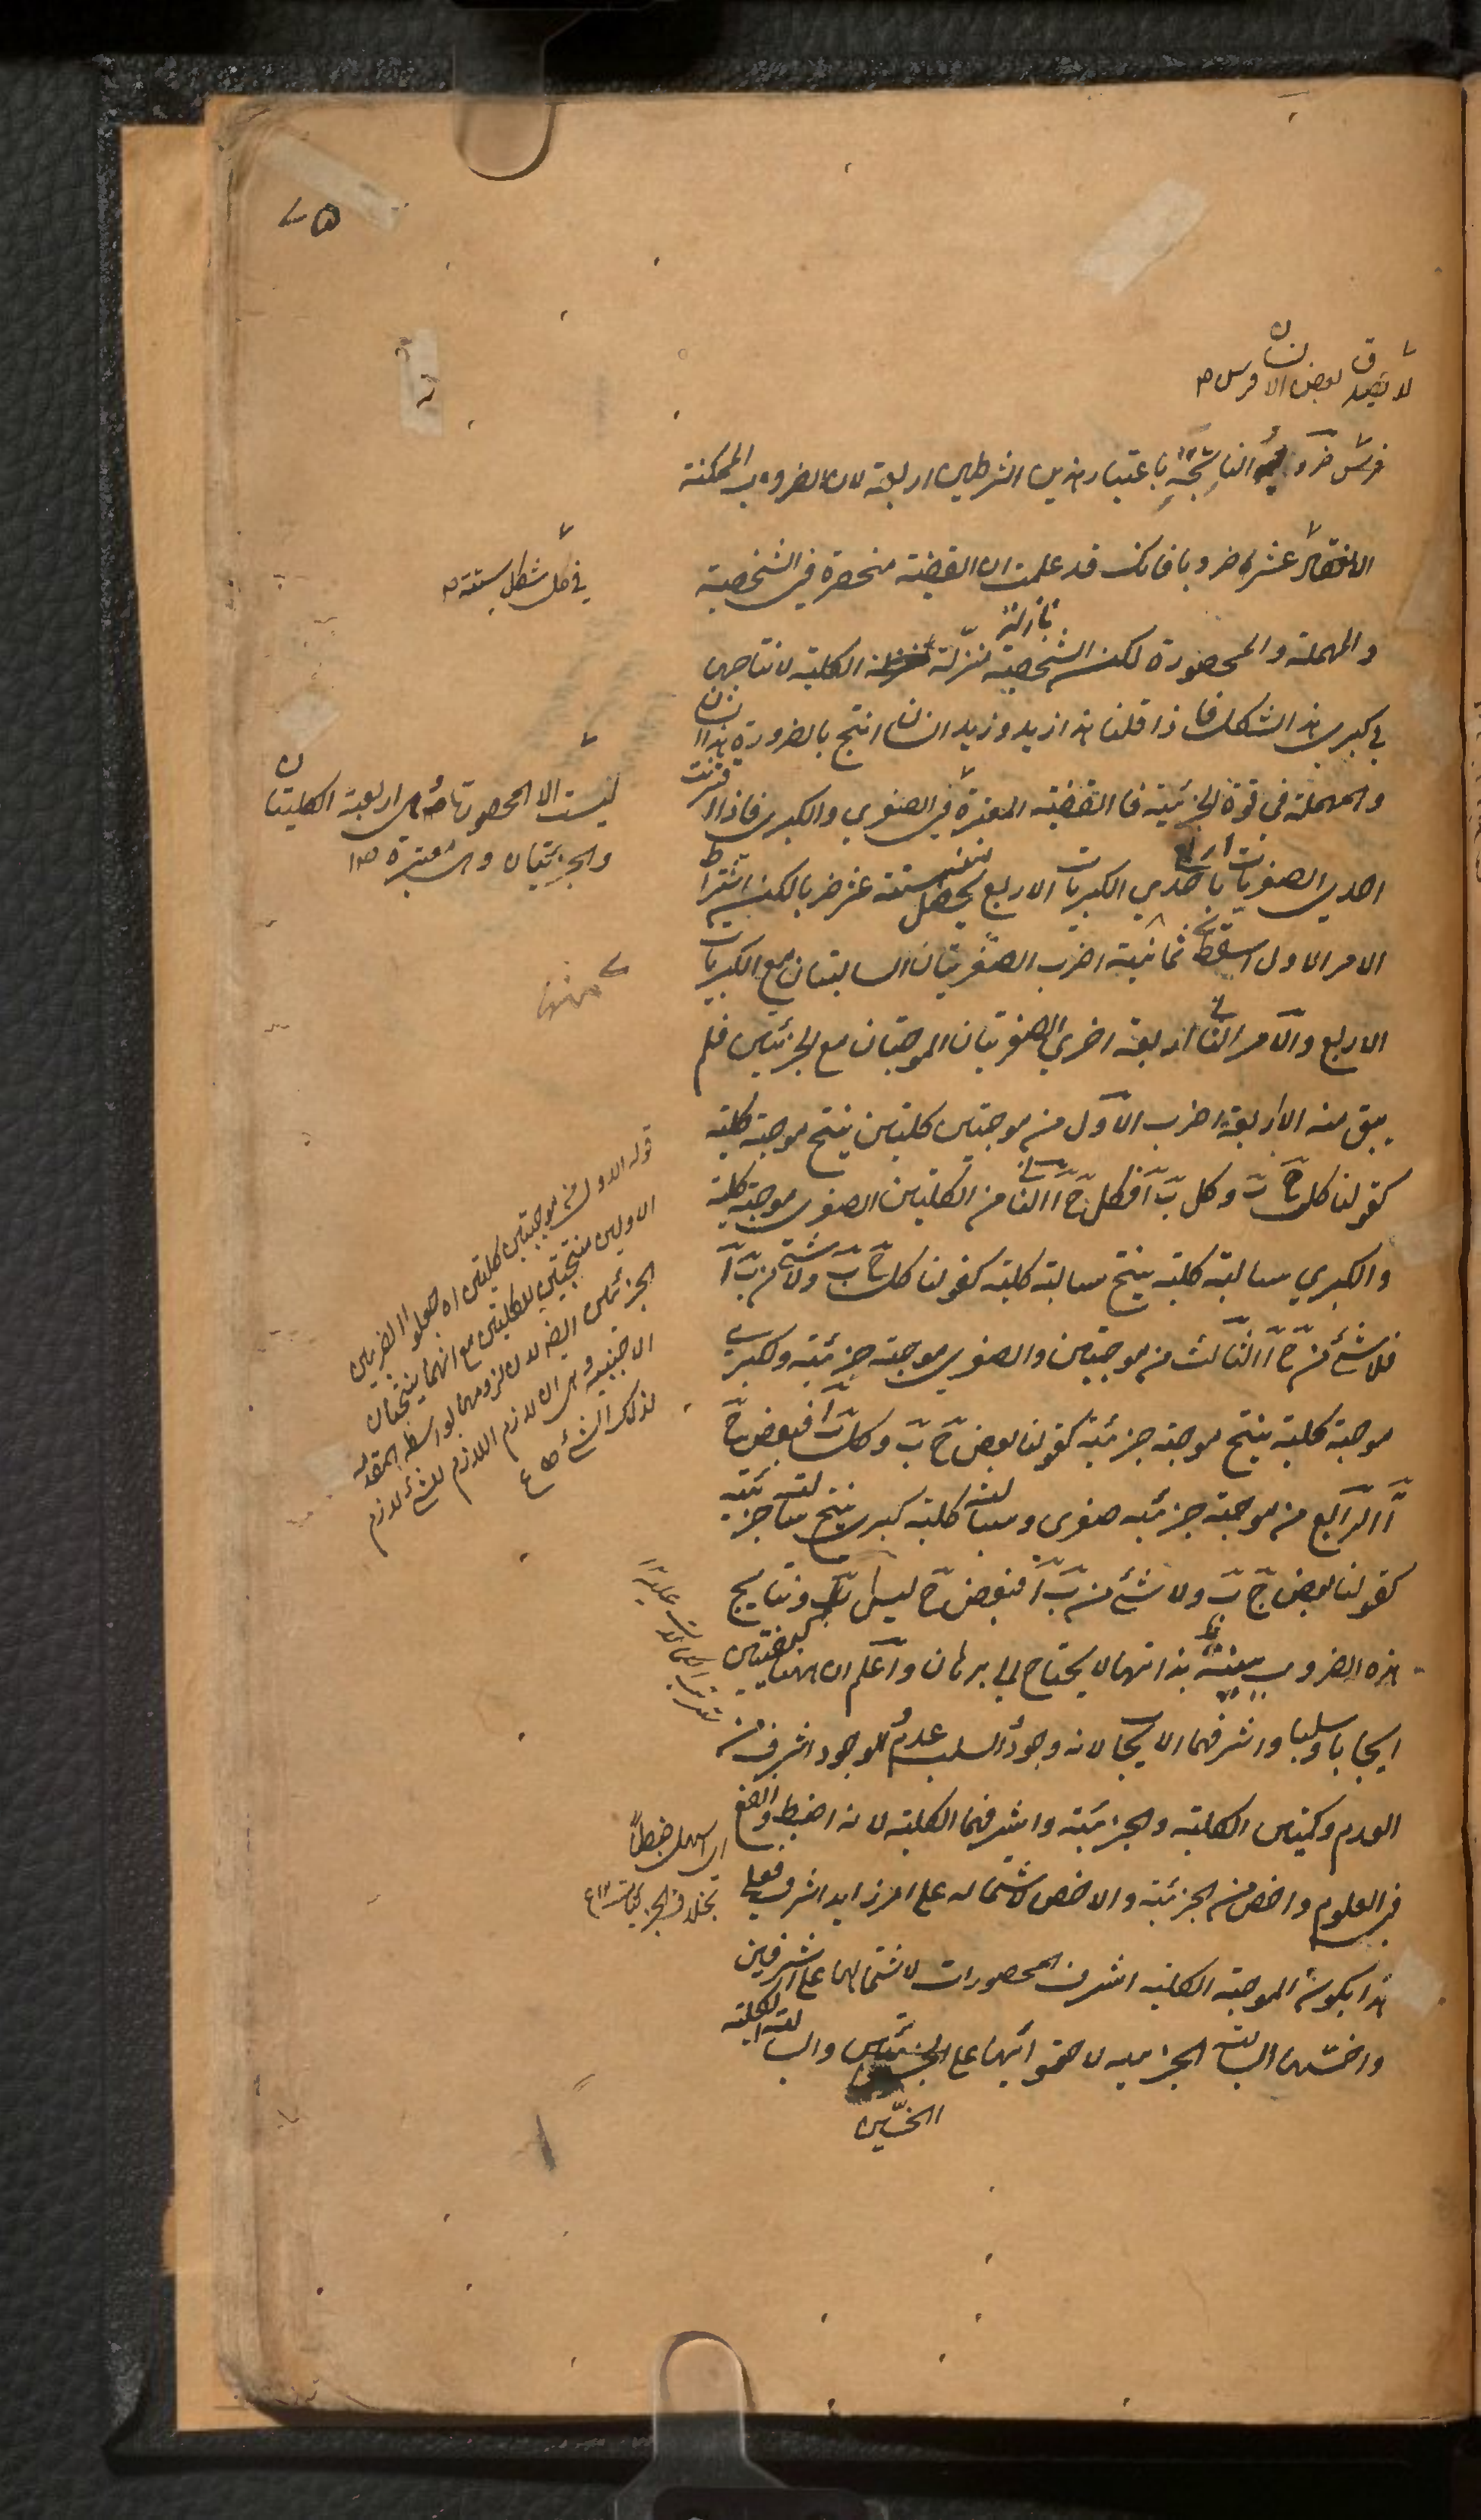 لا يصدق بعض الانسان فرس
فرس ضروبه الناتجة باعتبار هذين الشرطين اربعة لان الضروب الممكنة
الانعقاد عشر ضروبا فانك قد علمت ان القضية منحصرة في الشخصية
في كل شكل ستة
والمهملة والمحصورة لكن الشخصية منزلة بمنزلة الكلية لانتاجها
في كبرى هذا الشكل فاذا قلنا هذا زيد وزيد انسان انتج بالضرورة هذا انسان
والمهملة في قوة الجزئية فالقضية المعتبرة في الصغرى والكبرى فاذا اقترنت
ليست الا المحصورتها هى اربعة الكليتان
والجزئيتان والمعتبرة
احدى الصغريات باحدى الكبريات الاربع يحصل ستة عشر ضربا لكن اشتراط
الامر الاول اسقط ثمانية اضرب الصغريتان السالبتان مع الكبريات
منه
الاربع والامر الثانى اربعة اخرى الصغريتان الموجبتان مع الجزئيتين فلم
يبق منه الا اربعة اضرب الاول من موجبتين كليتين ينتج موجبة كلية
كقولنا كل ج ب وكل ب ا فكل ج ا الثانى من الكليتين الصغرى موجبة كلية
والكبرى سالبة كلية ينتج سالبة كلية كقولنا كل ج ب ولا شئ من ب ا
فلا شئ من ج ا الثالث من موجبتين والصغرى موجبة جزئية وكبرى
موجبة كلية ينتج موجبة جزئية كقولنا بعض ج ب وكل ب ا فبعض ج
ا الرابع من موجبة جزئية صغرى وسالبة كلية كبرى ينتج سالبة جزئية
كقولنا بعض ج ب ولا شئ من ب ا فبعض ج ليس ا ونتايج
هذه الضروب بينة بذاتها لا يحتاج الى برهان واعلم ان ههنا كيفيتين
ايجابا وسلبا واشرفهما الايجاب لانه وجود والسلب عدم والوجود اشرف من
العدم وكميتين الكلية والجزئية واشرفهما الكلية لانه اضبط وانفع
اى اسهل ضبطا
بخلاف الجزئيات
في العلوم واخص من الجزئية والاخص لاشتماله على امر زايد اشرف فعلى
هذا يكون الموجبة الكلية اشرف المحصورات لاشتمالها على اشرفين
واخسها السالبة الجزئية لاحتوائها على الخسيين والسالبة الكلية
الخسيين
قوله الاول من موجبتين كليتين اه جعلوا الضربين
الاولين منتجين للكليتين مع انهما ينتجان
الجزئيتين ايضا لان لزومهما بواسطة المقدمة
الاجنبية وهى ان لازم اللازم للشئ لازم
لذلك الشئ